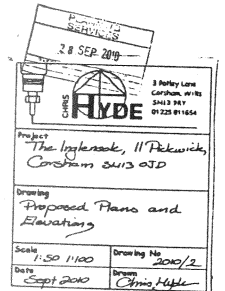 PLANNING
SERVICES
28 SEP 2010
CHRIS
HYDE
3 Potley Lane
Corsham, Wilts
SN13 9RY
01225 811654
Project
The Inglenook, 11 Pickwick,
Corsham SN13 0JD
Drawing
Proposed Plans and
Elevations
Scale
1:50 1:100
Drawing No
2010/2
Date
Sept 2010
Drawn
Chris Hyde